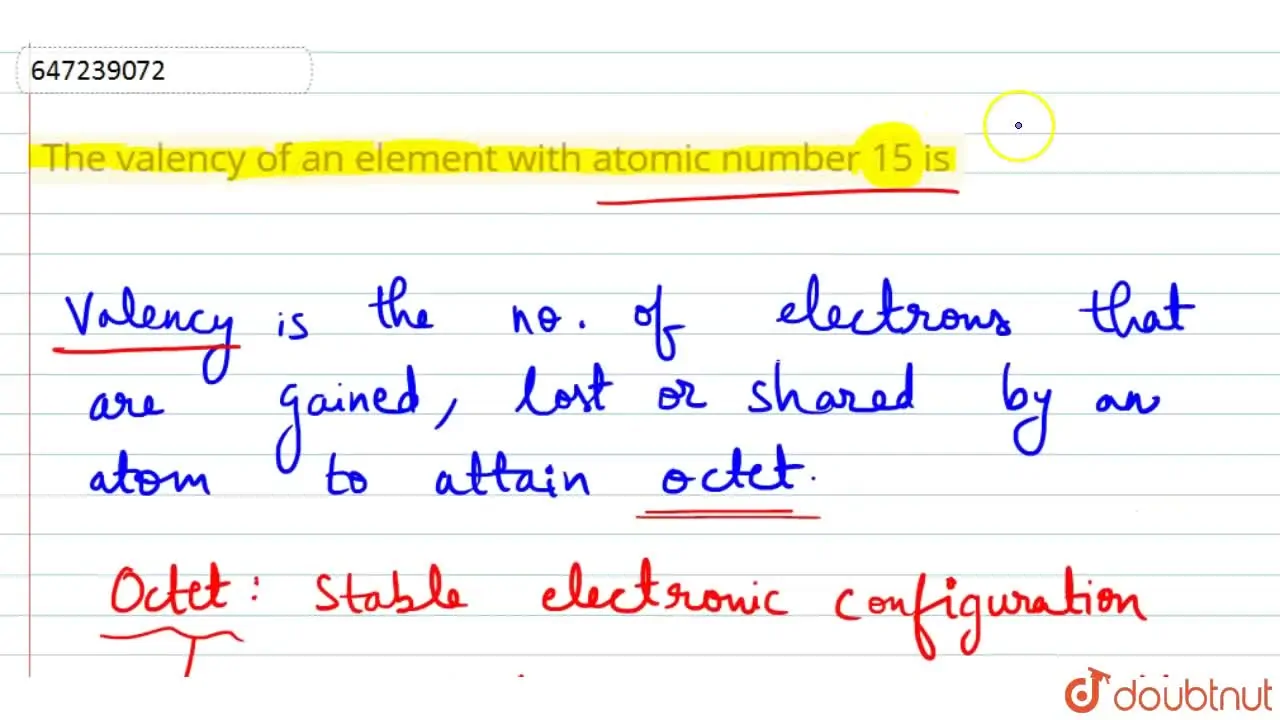 647239072
The valency of an element with atomic number 15 is
Valency is the no. of electrons that
are gained, lost or shared by an
atom to attain octet.
Octet: Stable electronic configuration
doubtnut